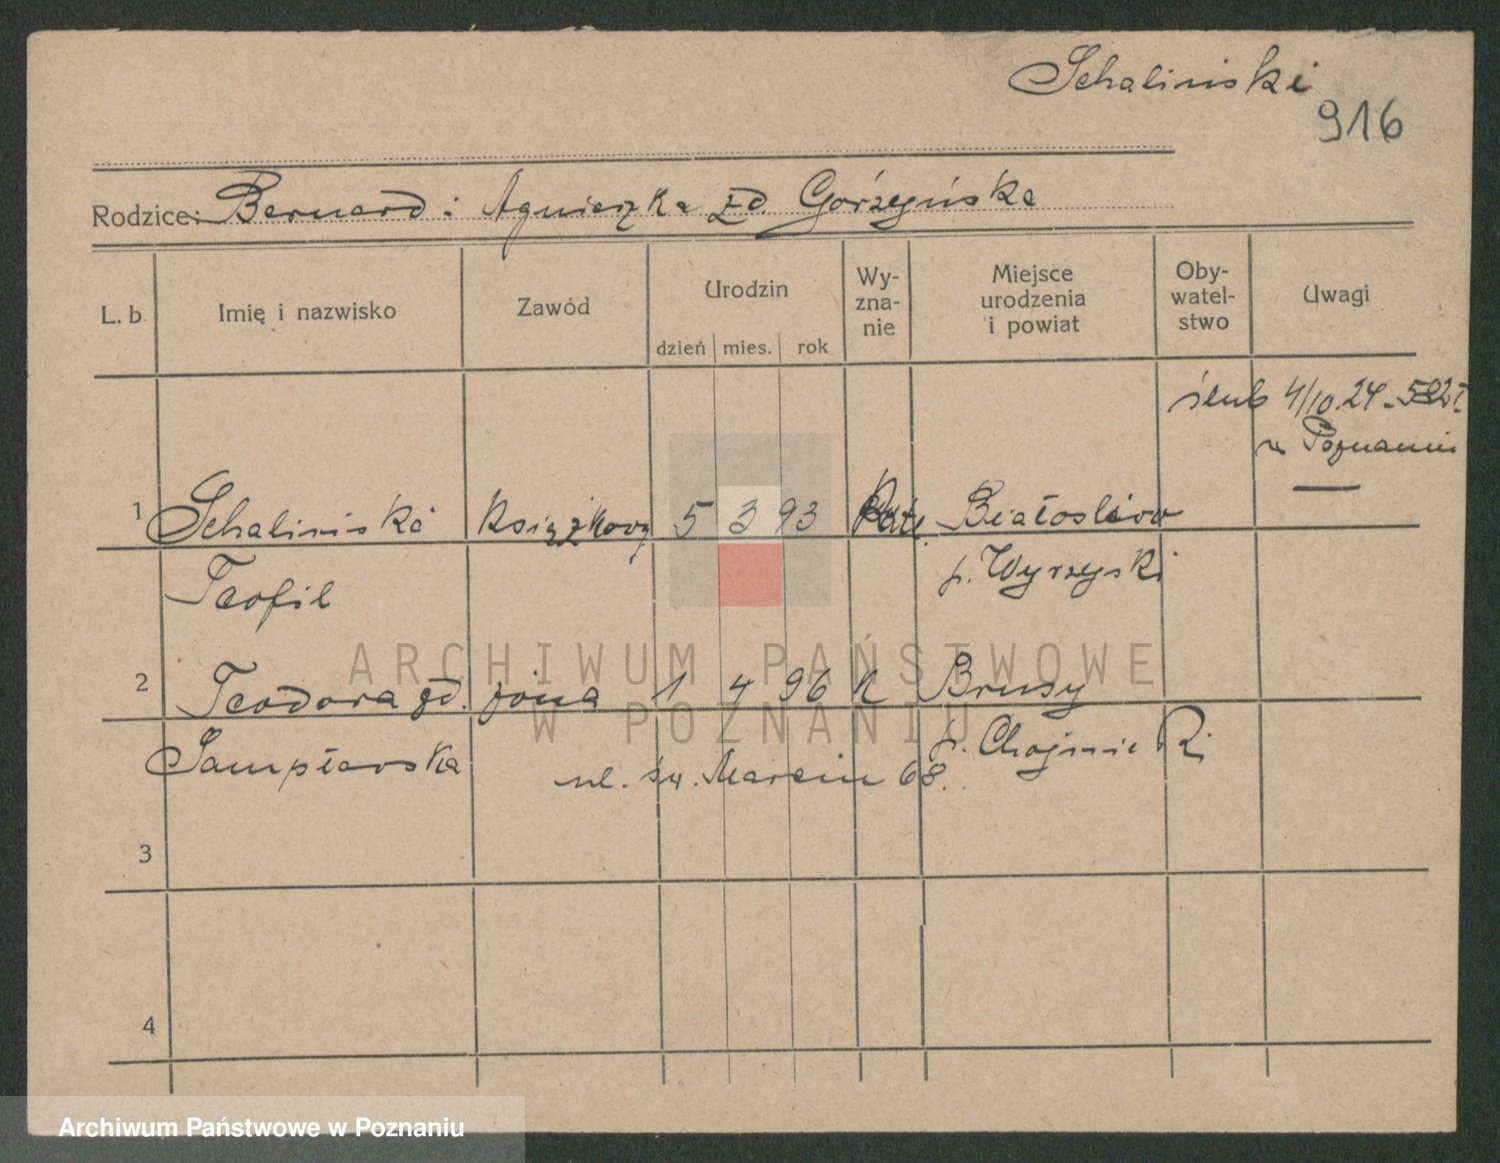 Schaliński
916
Rodzice: Bernard i Agnieszka zd. Górzeyńska
L. b. Imię i nazwisko Zawód Urodzin dzień mies. rok Wy-zna-nie Miejsce urodzenia i powiat Oby-watel-stwo Uwagi
ślub 4/10.24
w Poznaniu
1 Schaliński książkowy 5 3 93 Kat. Białosliwie
Teofil p. Wyrzyski
2 Teodora zd. żona 1 4 96 K Brusy
p. Chojnicki
ul. św. Marcin 68.
3
4
ARCHIWUM PAŃSTWOWE
W POZNANIU
Archiwum Państwowe w Poznaniu